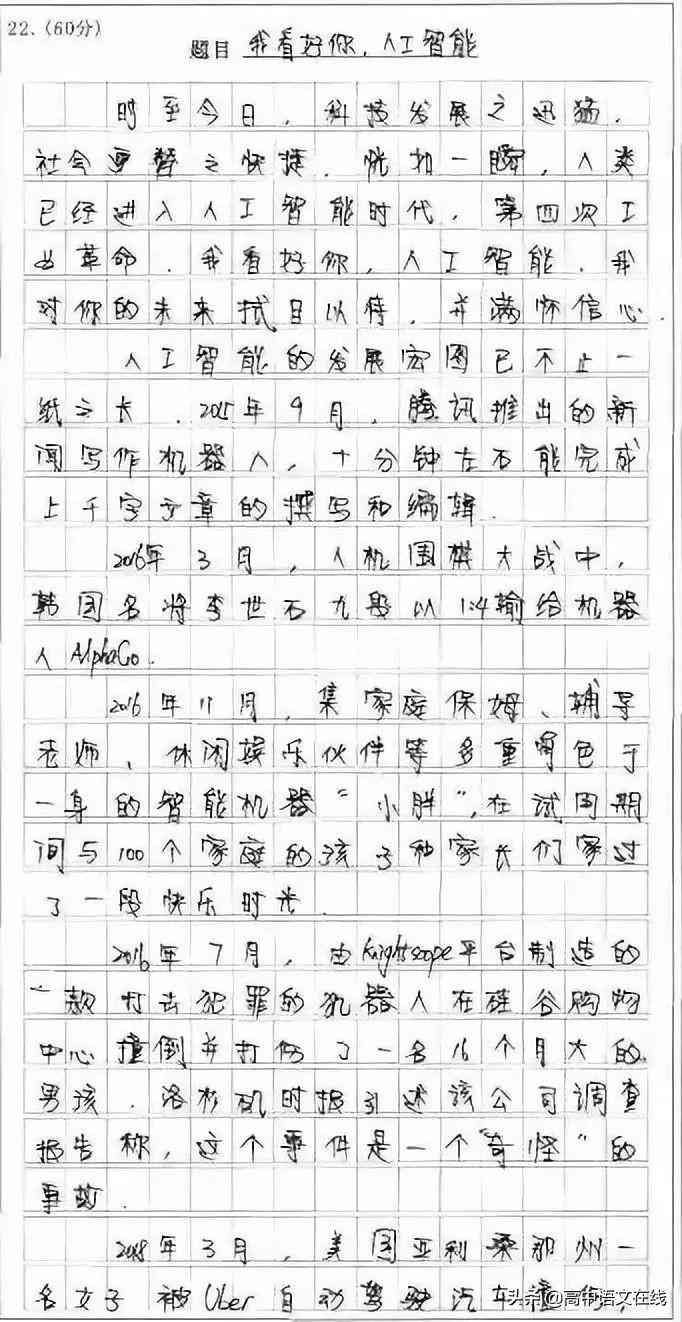 22.（60分）
题目 我看好你，人工智能
时至今日，科技发展之迅猛，
社会更替之快捷，恍如一瞬，人类
已经进入人工智能时代，第四次工
业革命．我看好你，人工智能．我
对你的未来拭目以待，并满怀信心．
人工智能的发展宏图已不止一
纸之长．2015年9月，腾讯推出的新
闻写作机器人，十分钟左右能完成
上千字文章的撰写和编辑．
2016年3月，人机围棋大战中，
韩国名将李世石九段以1:4输给机器
人AlphaGo．
2016年11月，集家庭保姆、辅导
老师、休闲娱乐伙伴等多重角色于
一身的智能机器“小胖”，在试用期
间与100个家庭的孩子和家长们家过
了一段快乐时光．
2016年7月，由Knightscope平台制造的
一款打击犯罪的机器人在硅谷购物
中心撞倒并打伤了一名16个月大的
男孩．洛杉矶时报引述该公司调查
报告称，这个事件是一个“奇怪”的
事故．
2018年3月，美国亚利桑那州一
名女子被Uber自动驾驶汽车撞伤，
头条@高中语文在线